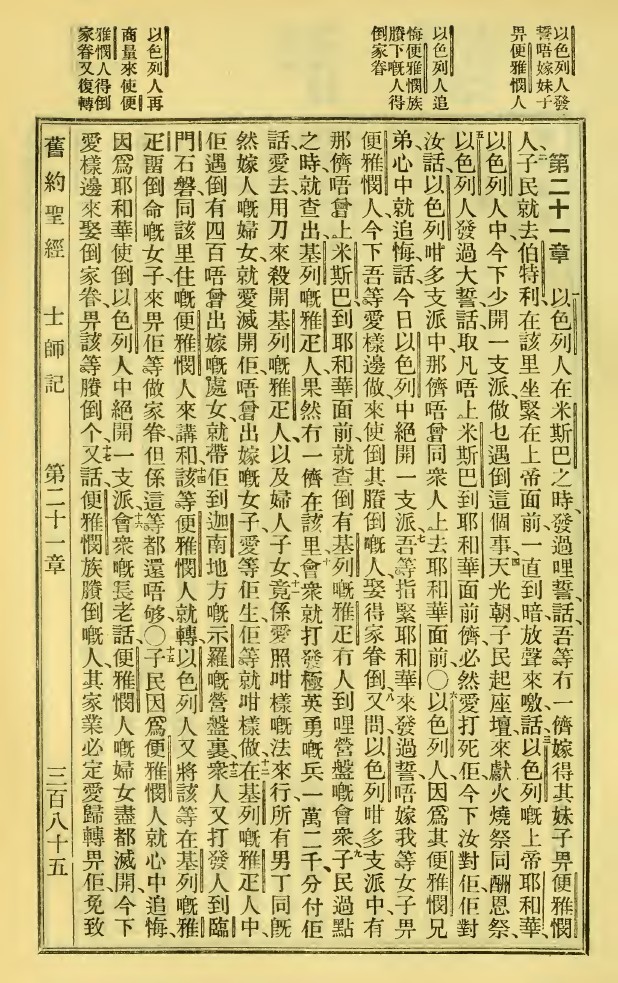 以色列人發
誓唔嫁妹子
畀便雅憫人
以色列人追
悔便雅憫族
賸下嘅人得
倒家眷
以色列人再
商量來使便
雅憫人得倒
家眷又復轉
第二十一章 一以色列人在米斯巴之時、發過哩誓話、吾等冇一儕嫁得其妹子畀便雅憫
人、二子民就去伯特利、在該里坐緊在上帝面前、一直到暗放聲來噭、三話、以色列嘅上帝耶和華、
以色列人中今下少開一支派、做乜遇倒這個事、四天光朝、子民起座壇、來獻火燒祭同酬恩祭、
五以色列人發過大誓話、取凡唔上米斯巴到耶和華面前儕、必然愛打死佢、今下汝對佢佢對
汝話、以色列咁多支派中、那儕唔曾同衆人上去耶和華面前、〇六以色列人因爲其便雅憫兄
弟、心中就追悔、話、今日以色列中絕開一支派、七吾等指緊耶和華來發過誓、唔嫁我等女子畀
便雅憫人、今下吾等愛樣邊做、來使倒其賸倒嘅人、娶得家眷倒、八又問以色列咁多支派中、有
那儕唔曾上米斯巴、到耶和華面前、就查倒有基列嘅雅疋冇人到哩營盤嘅會衆、九子民過點
之時、就查出基列嘅雅疋人、果然冇一儕在該里、十會衆就打發極英勇嘅兵一萬二千、分付佢
話、愛去用刀來殺開基列嘅雅疋人、以及婦人子女、十一竟係愛照咁樣嘅法來行、所有男丁、同旣
然嫁人嘅婦女、就愛滅開佢、唔曾出嫁嘅女子、愛等佢生、佢等就咁樣做、十二在基列嘅雅疋人中、
佢遇倒有四百唔曾出嫁嘅處女、就帶佢到迦南地方嘅示羅嘅營盤裏、十三衆人又打發人到臨
門石磐、同該里住嘅便雅憫人來講和、十四該等便雅憫人就轉、以色列人又將該等在基列嘅雅
疋畱倒命嘅女子、來畀佢等做家眷、但係這等都還唔够、〇十五子民因爲便雅憫人就心中追悔、
因爲耶和華使倒以色列人中絕開一支派、十六會衆嘅長老話、便雅憫人嘅婦女盡都滅開、今下
愛樣邊來娶倒家眷、畀該等賸倒个、十七又話、便雅憫族賸倒嘅人、其家業必定愛歸轉畀佢、免致
舊約聖經 士師記 第二十一章 三百八十五